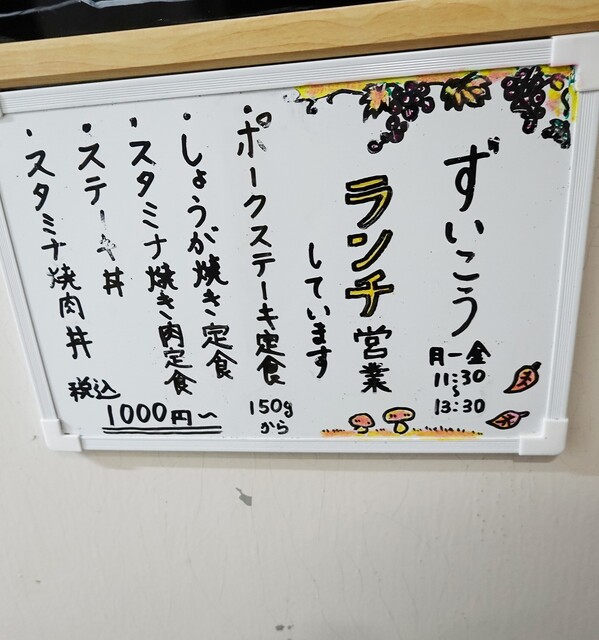 ずいこう
月ー金
11:30
〜
13:30
ランチ営業
しています
・ポークステーキ定食
150g
から
・しょうが焼き定食
・スタミナ焼き肉定食
・ステーキ丼
・スタミナ焼肉丼
税込
1000円〜